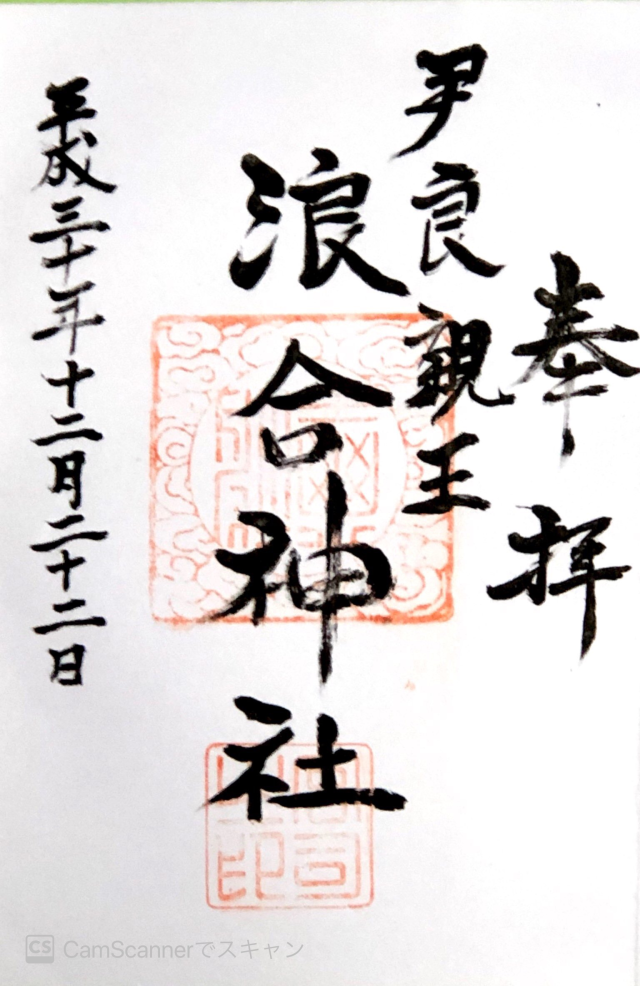 奉拝
尹良親王
浪合神社
平成三十年十二月二十二日
CS CamScannerでスキャン